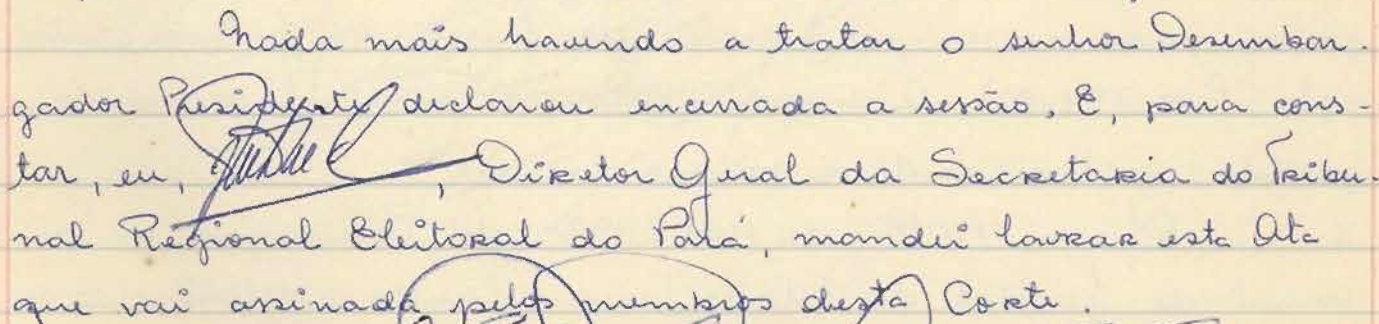 Nada mais havendo a tratar o senhor Desembar-
gador Presidente declarou encerrada a sessão. E, para cons-
tar, eu, , Diretor Geral da Secretaria do Tribu-
nal Regional Eleitoral do Pará, mandei lavrar esta Ata
que vai assinada pelos membros desta Corte.